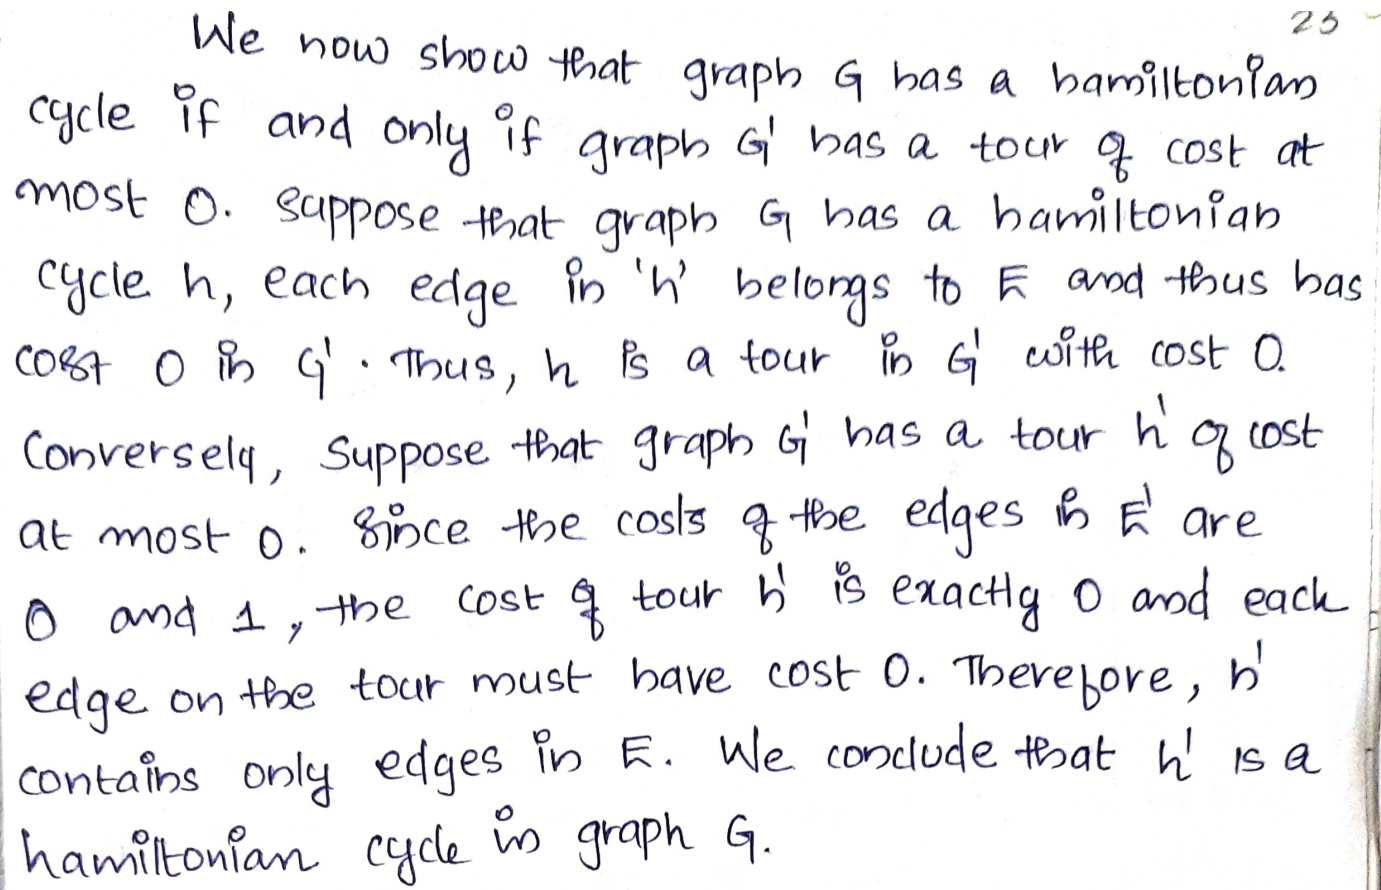 23
We now show that graph G has a hamiltonian
cycle if and only if graph G' has a tour of cost at
most 0. Suppose that graph G has a hamiltonian
cycle h, each edge in 'h' belongs to E and thus has
cost 0 in G'. Thus, h is a tour in G' with cost 0.
Conversely, Suppose that graph G' has a tour h' of cost
at most 0. Since the costs of the edges in E' are
0 and 1, the cost of tour h' is exactly 0 and each
edge on the tour must have cost 0. Therefore, h'
contains only edges in E. We conclude that h' is a
hamiltonian cycle in graph G.